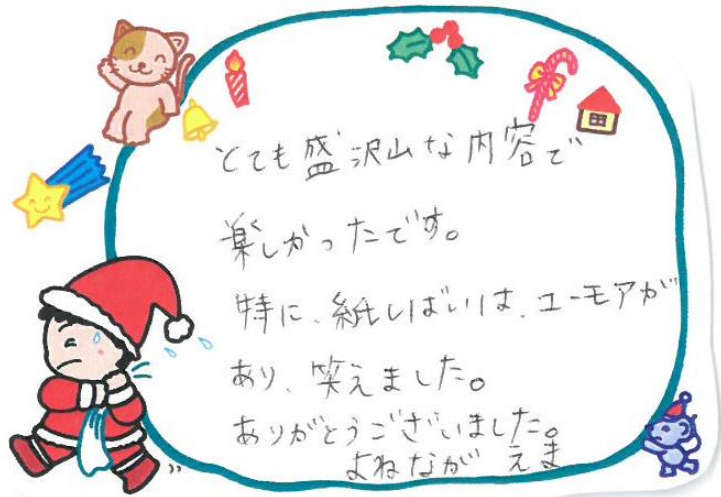 とても盛沢山な内容で
楽しかったです。
特に、紙しばいは、ユーモアが
あり、笑えました。
ありがとうございました。
よねなが えま